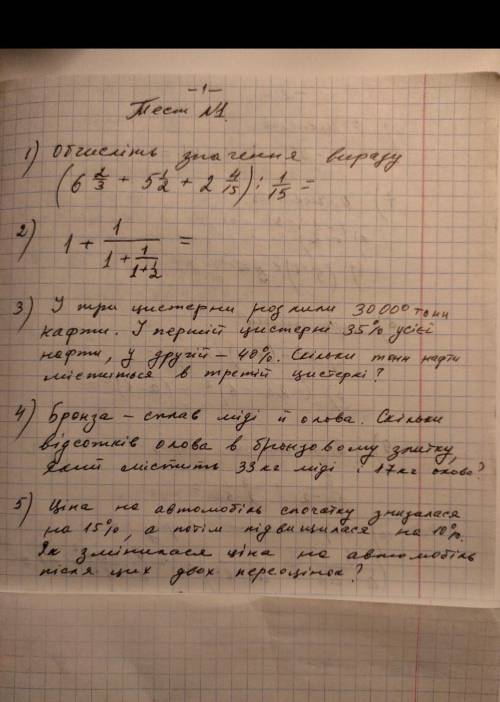 - 1 -
Тест №1.
1) Обчисліть значення виразу
(6 2/3 + 5 1/2 + 2 4/15) : 1/15 =
2) 1 + 1/(1 + 1/(1+1/2)) =
3) У три цистерни розлили 30000 тонн
нафти. У першій цистерні 35% усієї
нафти, у другій – 40%. Скільки тонн нафти
міститься в третій цистерні?
4) Бронза – сплав міді й олова. Скільки
відсотків олова в бронзовому злитку,
який містить 33 кг міді і 17 кг олова?
5) Ціна на автомобіль спочатку знизилася
на 15%, а потім підвищилася на 10%.
Як змінилася ціна на автомобіль
після цих двох переоцінок?